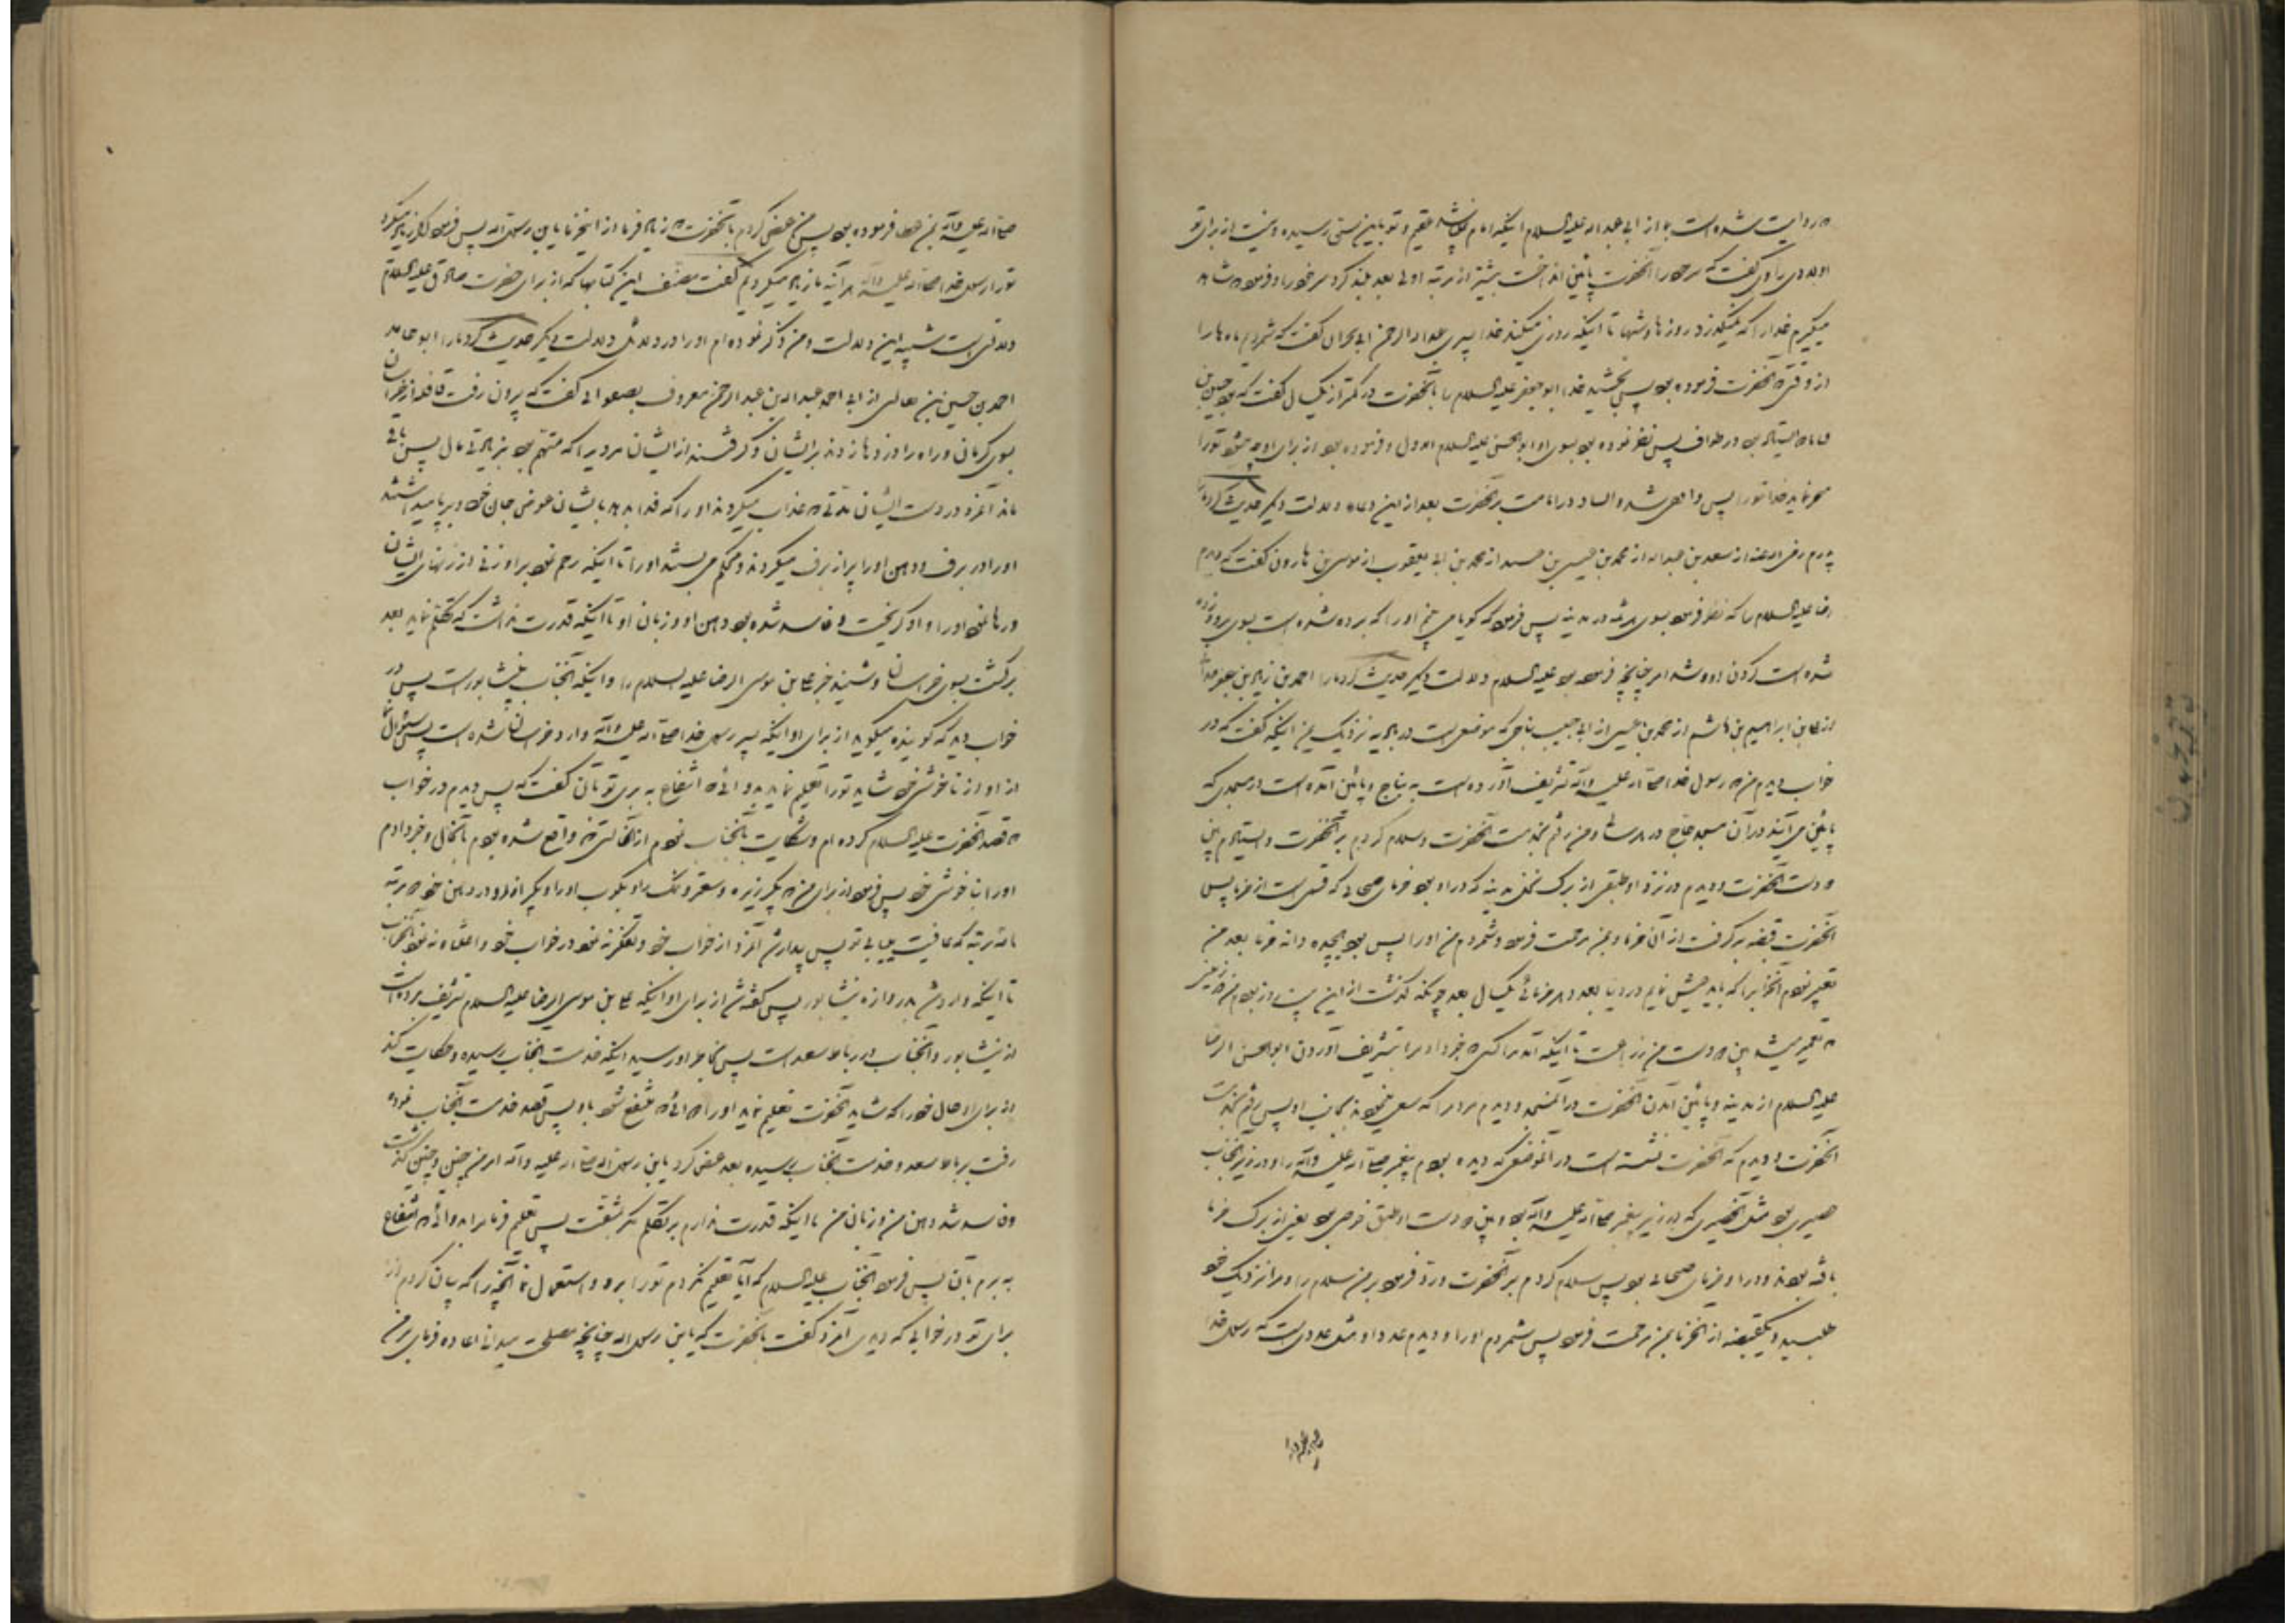 که روایت شده است ما از ابی عبد الله علیه السلام اینکه امام نمیباشد عقیم و تو باین سنی رسیده و نیست از برای تو
اولادی راوی گفت که سر خود را آنحضرت پائین انداخت بیشتر از مرتبه اولی بعد بلند کرد سر خود را و فرمود شاهد
میگیرم خدا را که نمیگذرد روزها و شبها تا اینکه روزی میکند خدا پسری عبد الرحمن ابی نجران گفت که شمردم ماه ها را
از وقتی که آنحضرت فرموده بود پس بخشید خدا ابو جعفر علیه السلام را بآنحضرت در کمتر از یک سال گفت که بود حسین بن
قیاما ایستاده در طواف پس نظر نموده بود بسوی او ابو الحسن علیه السلام الاول و فرموده بود از برای او چه میشود تو را
متحیر نماید خدا تو را پس واقفی شده و ایستاد در امامت بر آنحضرت بعد از این دعا دلالت دیگر حدیث کرد ما را
پدرم رضی الله عنه از سعد بن عبد الله از محمد بن عیسی بن عبید از محمد بن ابی یعقوب از موسی بن هارون گفت که دیدم
رضا علیه السلام را که نظر فرمود بسوی هرثمه در مدینه پس فرمود که گویا می بینم او را که برده شده است بسوی مرو و زده
شده است گردن او و شد امر چنانچه فرموده بود علیه السلام دلالت دیگر حدیث کرد ما را احمد بن زیاد بن جعفر همدانی
از علی بن ابراهیم بن هاشم از محمد بن عیسی از ابی حبیب نباجی که موضعی است در بادیه نزدیک یمن اینکه گفت که در
خواب دیدم من که رسول خدا صلی الله علیه و آله تشریف آورده است به نباج و پائین آمده است در مسجدی که
پائین می آیند در آن مسجد حاج در هر سال و من رفتم بخدمت آنحضرت و سلام کردم بر آنحضرت و ایستادم پیش
دو دست آنحضرت و دیدم در نزد او طبقی از برگ نخل مدینه که در او بود خرمای صیحانی که قسمی است از خرما پس
آنحضرت قبضه بر گرفت از آن خرما و بمن مرحمت فرمود و شمردم من او را پس بود هیجده دانه خرما بعد من
تعبیر نمودم آنخواب را که باید عیش نمایم در دنیا بعدد هر خرمائی یک سال بعد چونکه گذشت از این بیست روز بودم من در زمینی
که تعمیر میشد پیش دو دست من زراعت تا اینکه آمد مرا کسی که خبر داد مرا بتشریف آوردن ابو الحسن الرضا
علیه السلام از مدینه و پائین آمدن آنحضرت در آنمسجد و دیدم مردم را که سعی مینمودند بجانب او پس رفتم بخدمت
آنحضرت و دیدم که آنحضرت نشسته است در آنموضعی که دیده بودم پیغمبر صلی الله علیه و آله را و در زیر آنجناب
حصیری بود مثل آنحصیری که در زیر پیغمبر صلی الله علیه و آله بود و پیش دو دست او طبق خوصی بود یعنی از برگ خرما
بافته بودند و در او خرمای صیحانی بود پس سلام کردم بر آنحضرت و رد فرمود بر من سلام را و مرا نزدیک خود
طلبید و یکقبضه از آنخرما بمن مرحمت فرمود پس شمردم او را و دیدم عدد او مثل عددیست که رسول خدا
صلی الله علیه و آله بمن عطا فرموده بود پس من عرض کردم بآنحضرت که زیاد فرما از اینخرما یابن رسول الله پس فرمود اگر زیاد میکرد
تو را رسول خدا صلی الله علیه و آله هر آینه ما زیاد میکردیم گفت مصنف این کتاب که از برای حضرت صادق علیه السلام
دلالتی است شبیه این دلالت و من ذکر نموده ام او را در دلائل دلالت دیگر حدیث کرد ما را ابو حامد
احمد بن حسین بن ثعالبی از ابی احمد عبد الله بن عبد الرحمن معروف بصفوانی گفت که بیرون رفت قافله از خراسان
بسوی کرمان و راه را دزدها زدند برایشان و گرفتند از ایشان مردیرا که متهم بود بزیادتی مال پس باقی
ماند آنمرد در دست ایشان مدتی که عذاب میکردند او را که فدا بدهد بایشان عوض جان خود و بر پا میداشتند
او را در برف و دهن او را پر از برف میکردند و محکم می بستند او را تا اینکه رحم نمود بر او زنی از زنهای ایشان
و رها نمود او را و او گریخت و فاسد شده بود دهن او و زبان او تا اینکه قدرت نداشت که تکلم نماید بعد
برگشت بسوی خراسان و شنید خبر علی بن موسی الرضا علیه السلام را و اینکه آنجناب بنیشابور است پس در
خواب دید که گوینده میگوید از برای او اینکه پسر رسول خدا صلی الله علیه و آله وارد خراسان شده است پس سؤال کن
از او از ناخوشی خود شاید تو را تعلیم نماید بدوائی که انتفاع به بری تو بآن گفت که پس دیدم در خواب
که قصد آنحضرت علیه السلام کرده ام و شکایت بآنجناب نمودم از آنحالتی که واقع شده بودم بآنحال و خبر دادم
او را بناخوشی خود پس فرمود از برای من که بگیر زیره و سعتر و نمک را و بکوب او را و بگیر از او در دهن خود دو مرتبه
یا سه مرتبه که عافیت مییابی تو پس بیدار شد آنمرد از خواب خود و تفکر نه نمود در خواب خود و اعتناء نه نمود بآنخواب
تا اینکه وارد شد بدروازه نیشابور پس گفته شد از برای او اینکه علی بن موسی الرضا علیه السلام تشریف برده است
از نیشابور و آنجناب در رباط سعد است پس بخاطر او رسید اینکه خدمت آنجناب رسیده و حکایت کند
از برای او حال خود را که شاید آنحضرت تعلیم نماید او را دوائی که منتفع شود باو پس قصد خدمت آنجناب نموده
رفت برباط سعد و خدمت آنجناب رسیده بعد عرض کرد یابن رسول الله صلی الله علیه و آله امر من چنین و چنین گذشت
و فاسد شد دهن من و زبان من تا اینکه قدرت ندارم بر تکلم مگر بمشقت پس تعلیم فرما مرا بدوائی که انتفاع
به برم بآن پس فرمود آنجناب علیه السلام که آیا تعلیم نکردم تو را برو و استعمال نما آنچه را که بیان کردم از
برای تو در خوابی که دیدی آنمرد گفت بآنحضرت که یابن رسول الله چنانچه مصلحت میدانی اعاده فرمای بر من